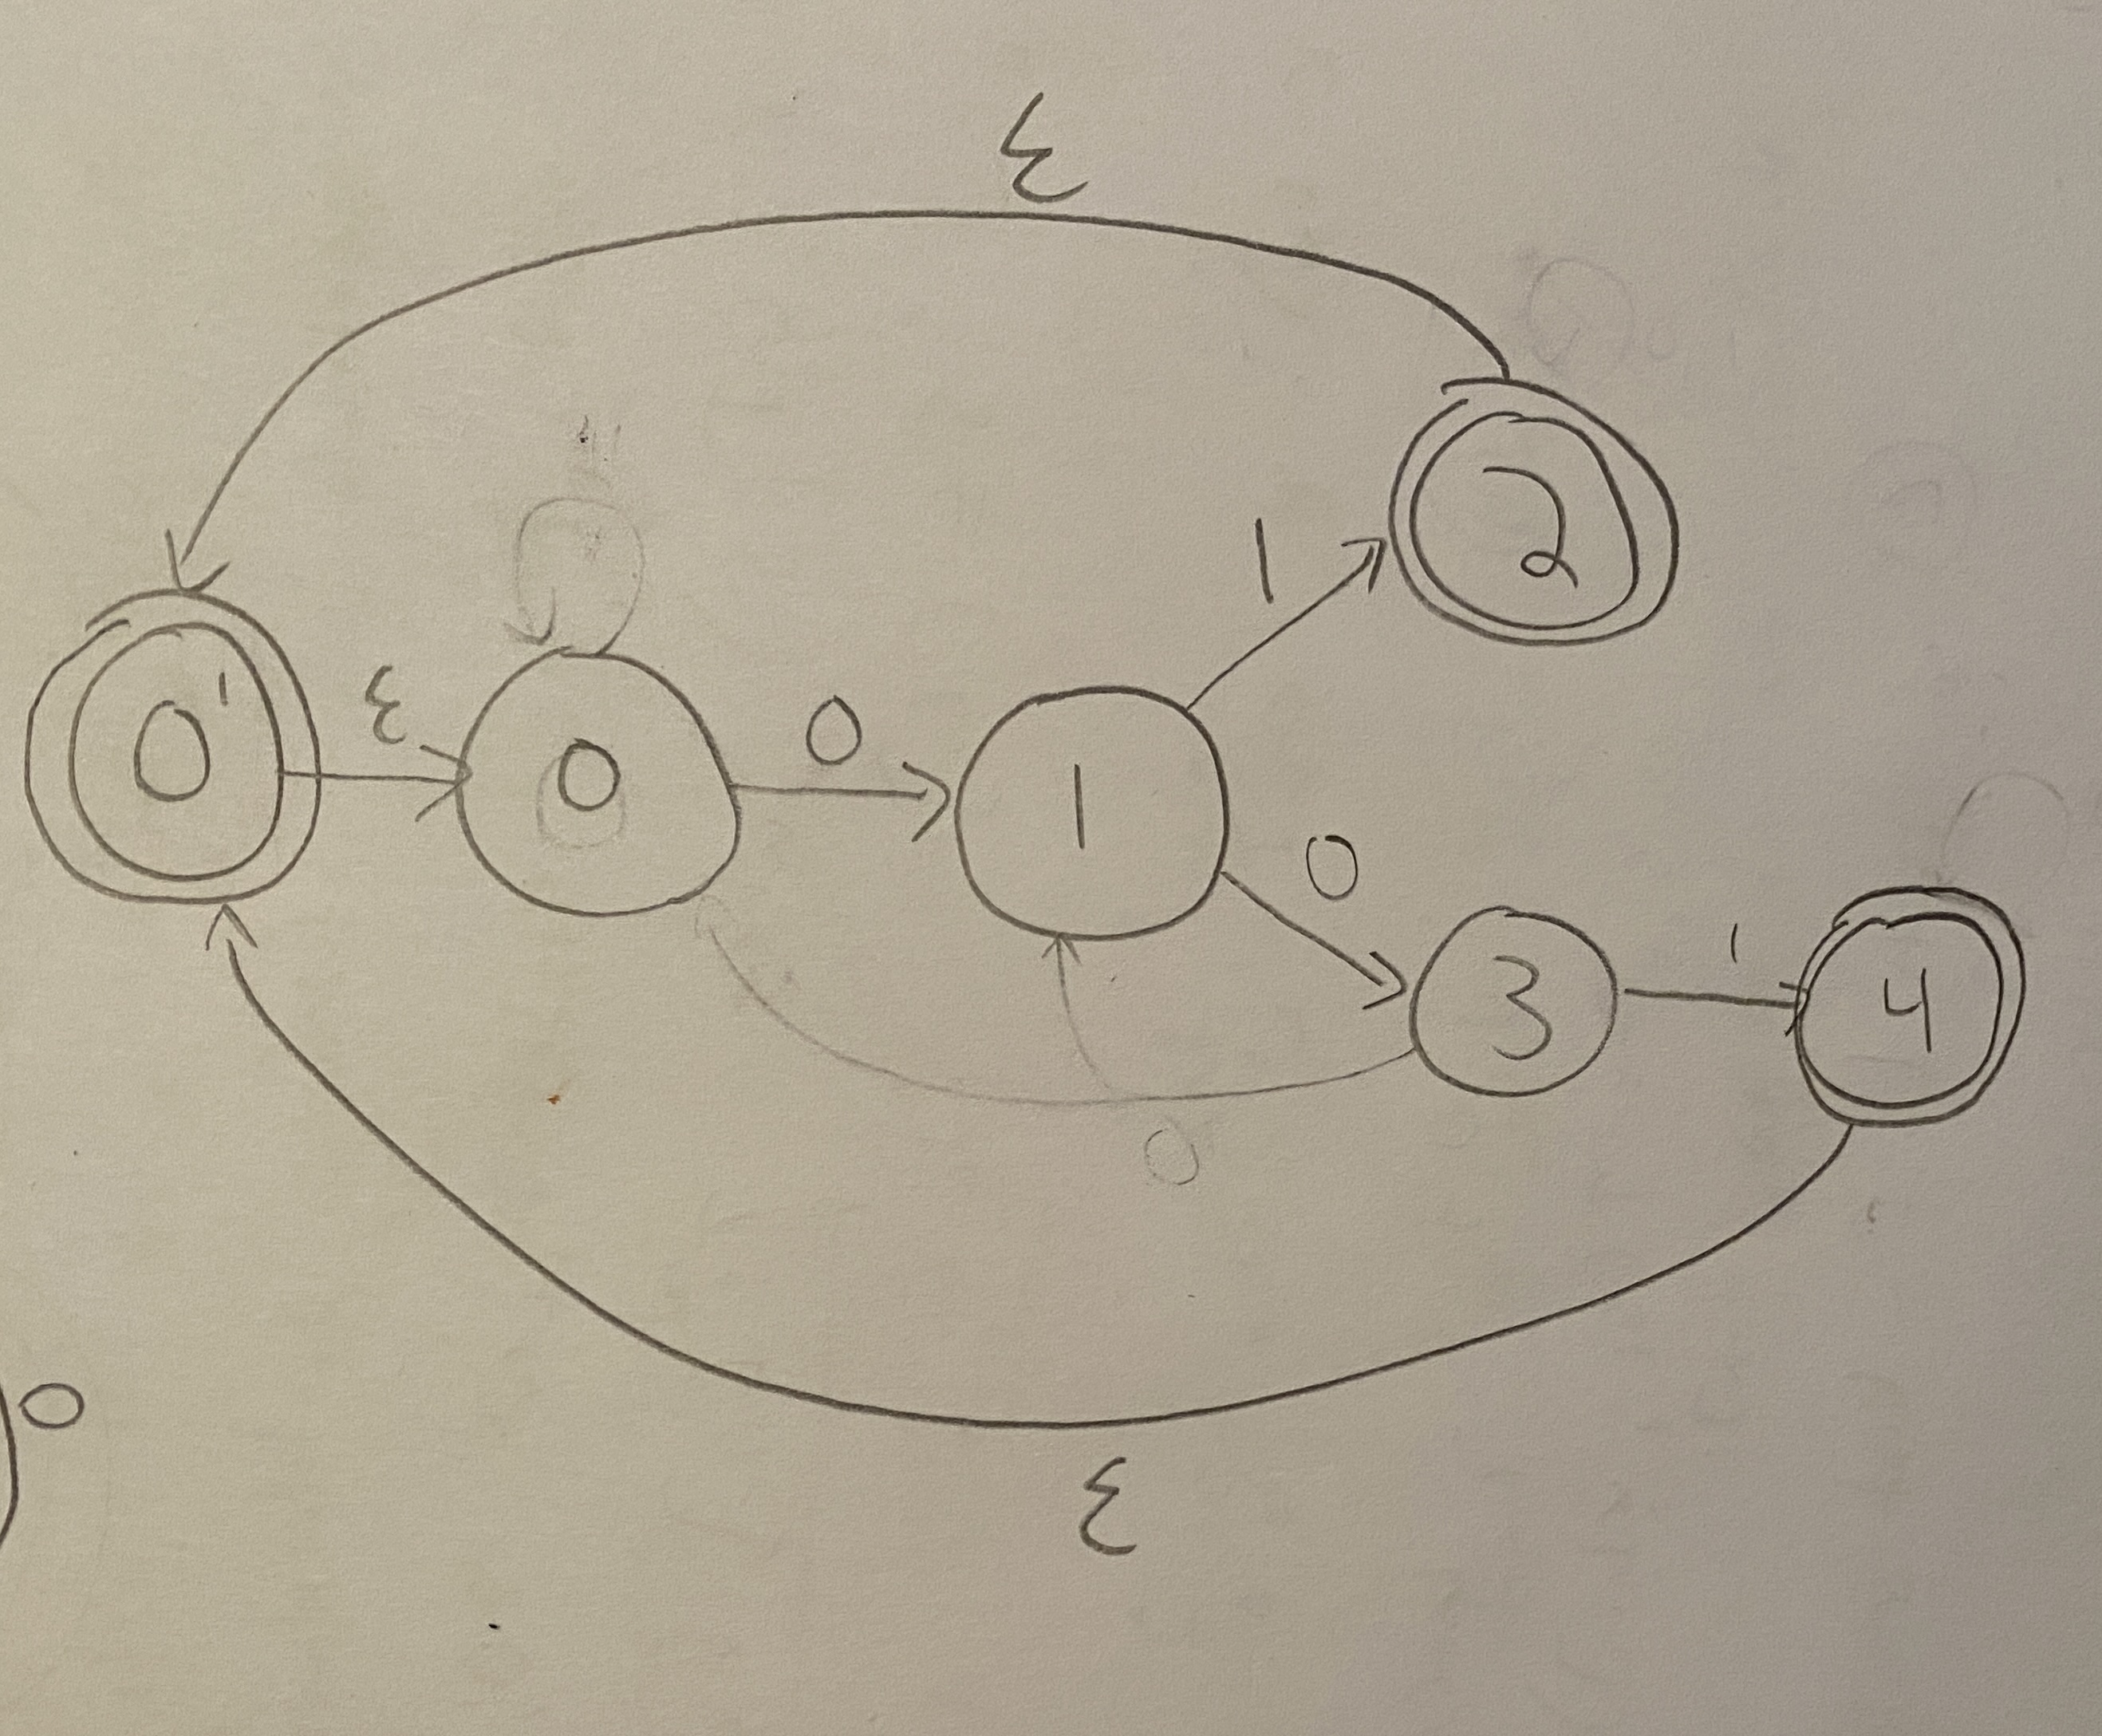 ε
2
1
0'
ε
0
0
1
0
3
1
4
0
0
ε